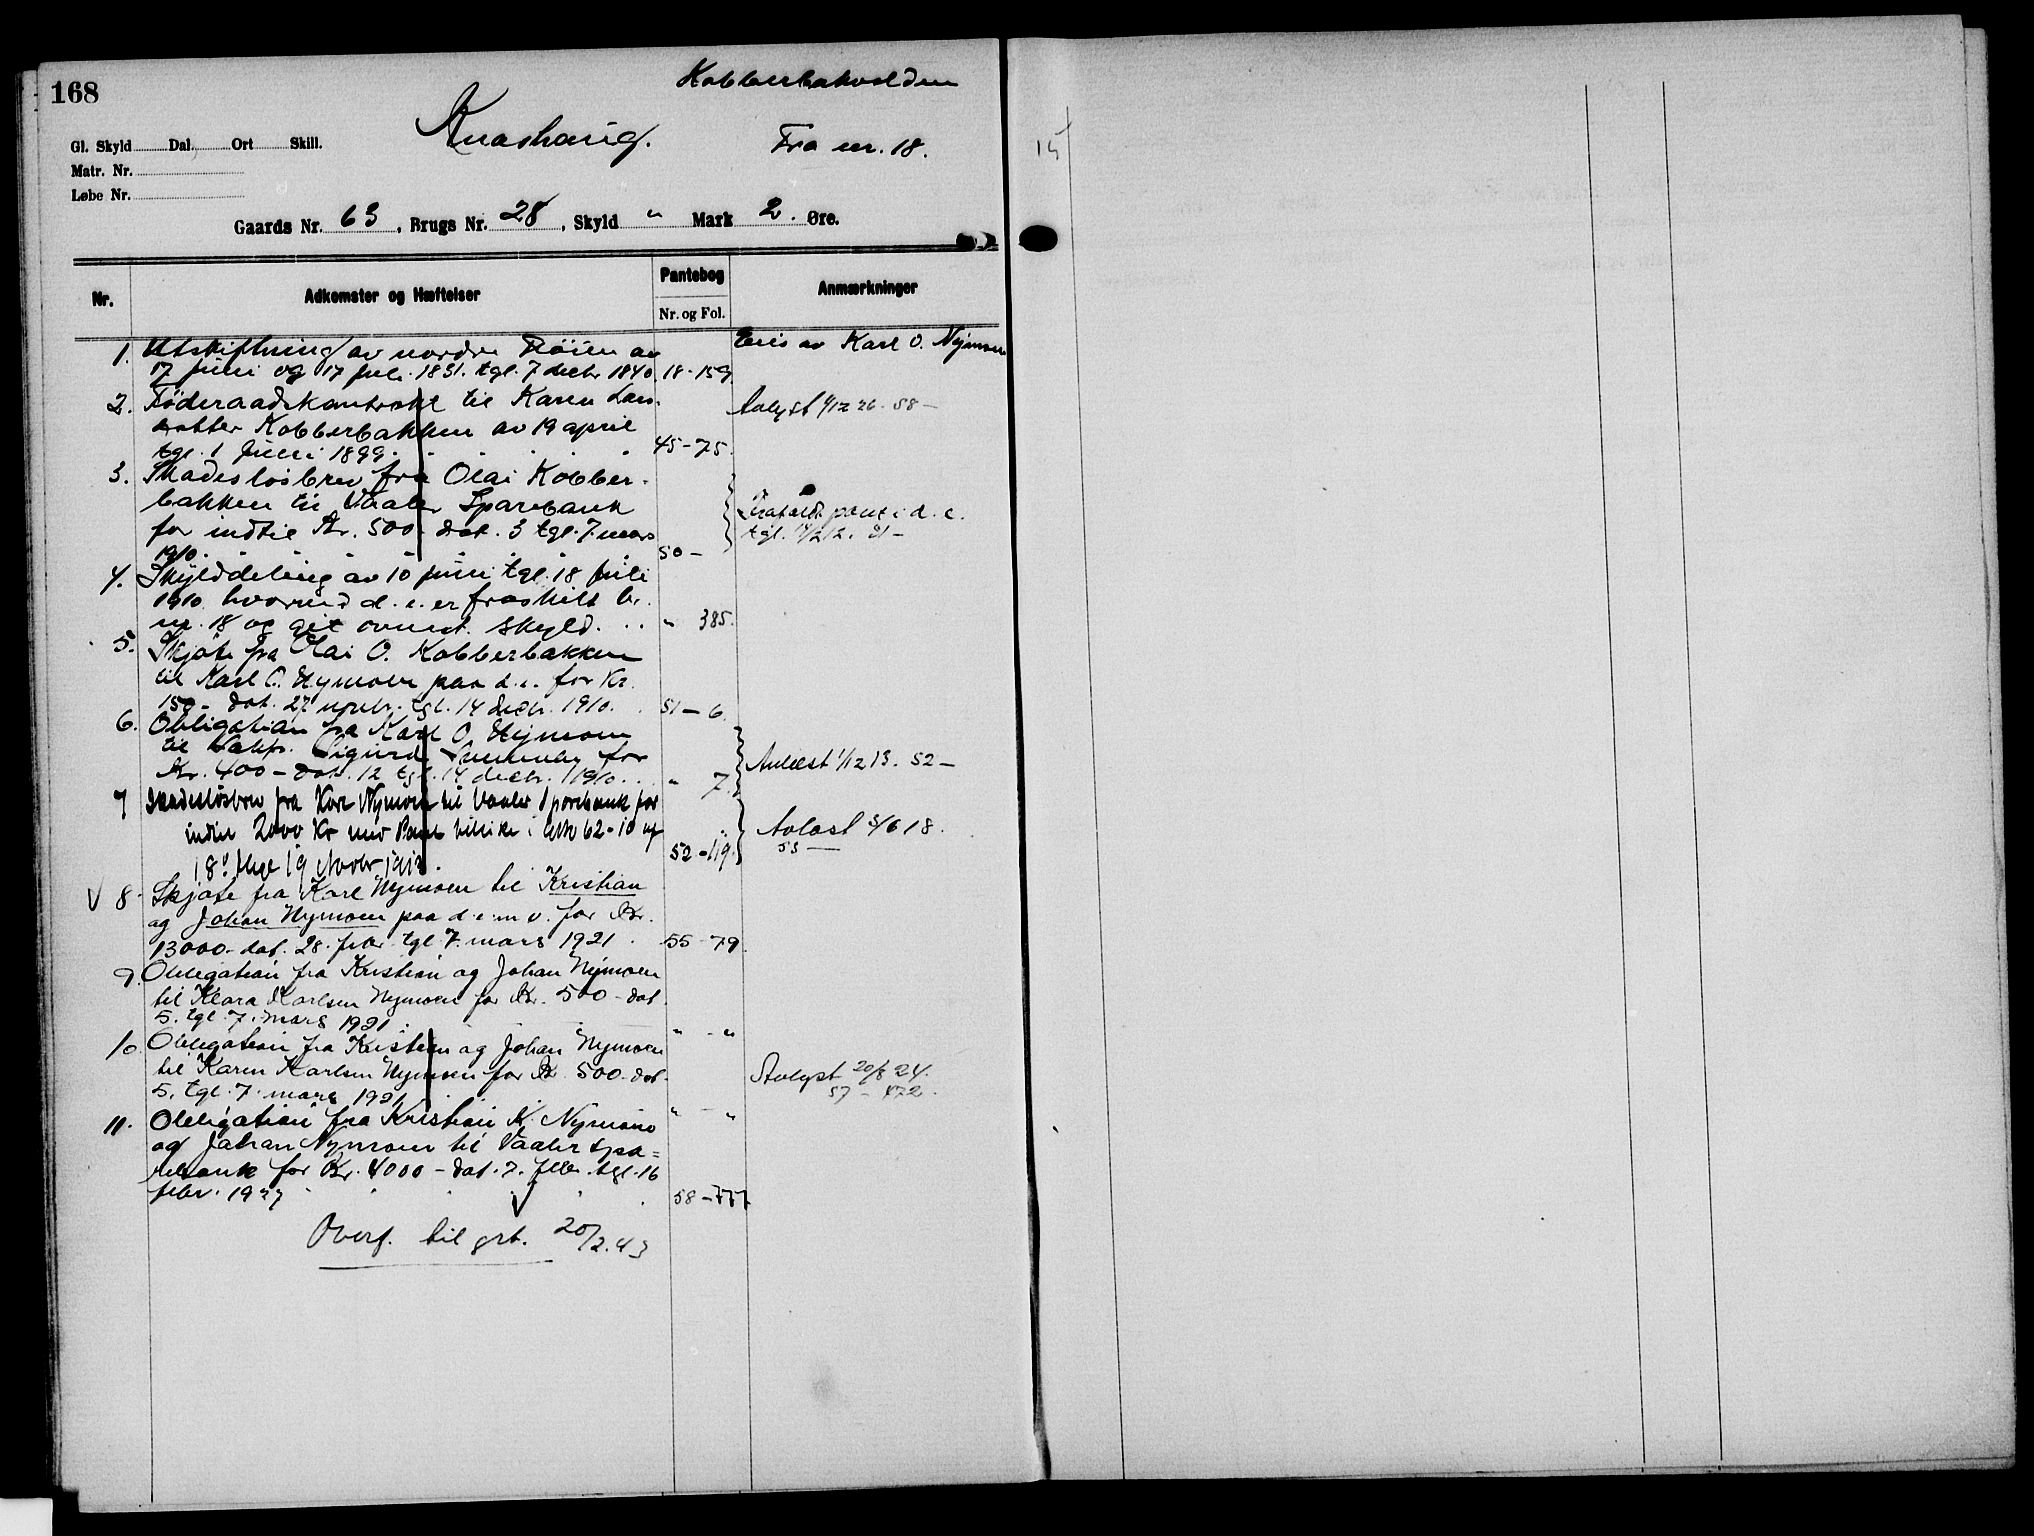 168
Kobberbakvolden
Knashaug.
Fra nr. 18.
Gl. Skyld Dal. Ort Skill.
Matr. Nr.
Løbe Nr.
Gaards Nr. 63, Brugs Nr. 28, Skyld " Mark 2. Øre.
Nr. Adkomster og Hæftelser Pantebog Nr. og Fol. Anmærkninger
Eies av Karl O. Nymoen
1. Utskiftning av nordre av
17 juni og 17 juli 1831. tgl. 7 decbr 1840. 18-159
2. Føderaadskontrakt til Karen Lars- Avlyst 1/12 26. 58-
datter Kobberbakken av 19 april
tgl. 1 juni 1899. 45-75.
3. Skadesløsbrev fra Olai Kobber-
bakken til Vaaler Sparebank
for indtil Kr. 500- dat. 3 tgl. 7 mars pant i d. e.
1910. 50- tgl. 14/2 12. 51-
4. Skylddeling av 10 juni tgl. 18 juli
1910 hvorved d. e. er fraskilt br.
nr. 18 og git ovenst. skyld. " 385.
5. Skjøte fra Olai O. Kobberbakken
til Karl O. Nymoen paa d. e. for Kr.
150- dat. 27 novbr. tgl. 14 decbr. 1910. 51-6.
6. Obligation fra Karl O. Nymoen
til Sigurd for
Kr. 400- dat. 12 tgl. 14 decbr. 1910. " 7. Avlæst 1/12 13. 52-
7 Skadesløsbrev fra Karl Nymoen til Vaaler Sparebank for
indtil 2000 Kr med Pant tillike i 62-10 og
18. tlyst 19 Novbr. 1913. 52-119. Avlæst 3/6 18.
53-
8. Skjøte fra Karl Nymoen til Kristian
og Johan Nymoen paa d. e. m. v. for Kr.
13000- dat. 28. febr. tgl. 7. mars 1921. 55-79.
9. Obligation fra Kristian og Johan Nymoen
til Klara Karlsen Nymoen for Kr. 500- dat.
5. tgl. 7. mars 1921. " - "
10. Obligation fra Kristian og Johan Nymoen
til Karen Karlsen Nymoen for Kr. 500- dat. Avlyst 20/8 24.
5. tgl. 7. mars 1921 " - " 57-472.
11. Obligation fra Kristian K. Nymoen
og Johan Nymoen til Vaaler Spa=
rebank for Kr. 4000- dat. 7. febr. tgl. 16
febr. 1927 58-777.
Overf. til grb. 20/2.43
15